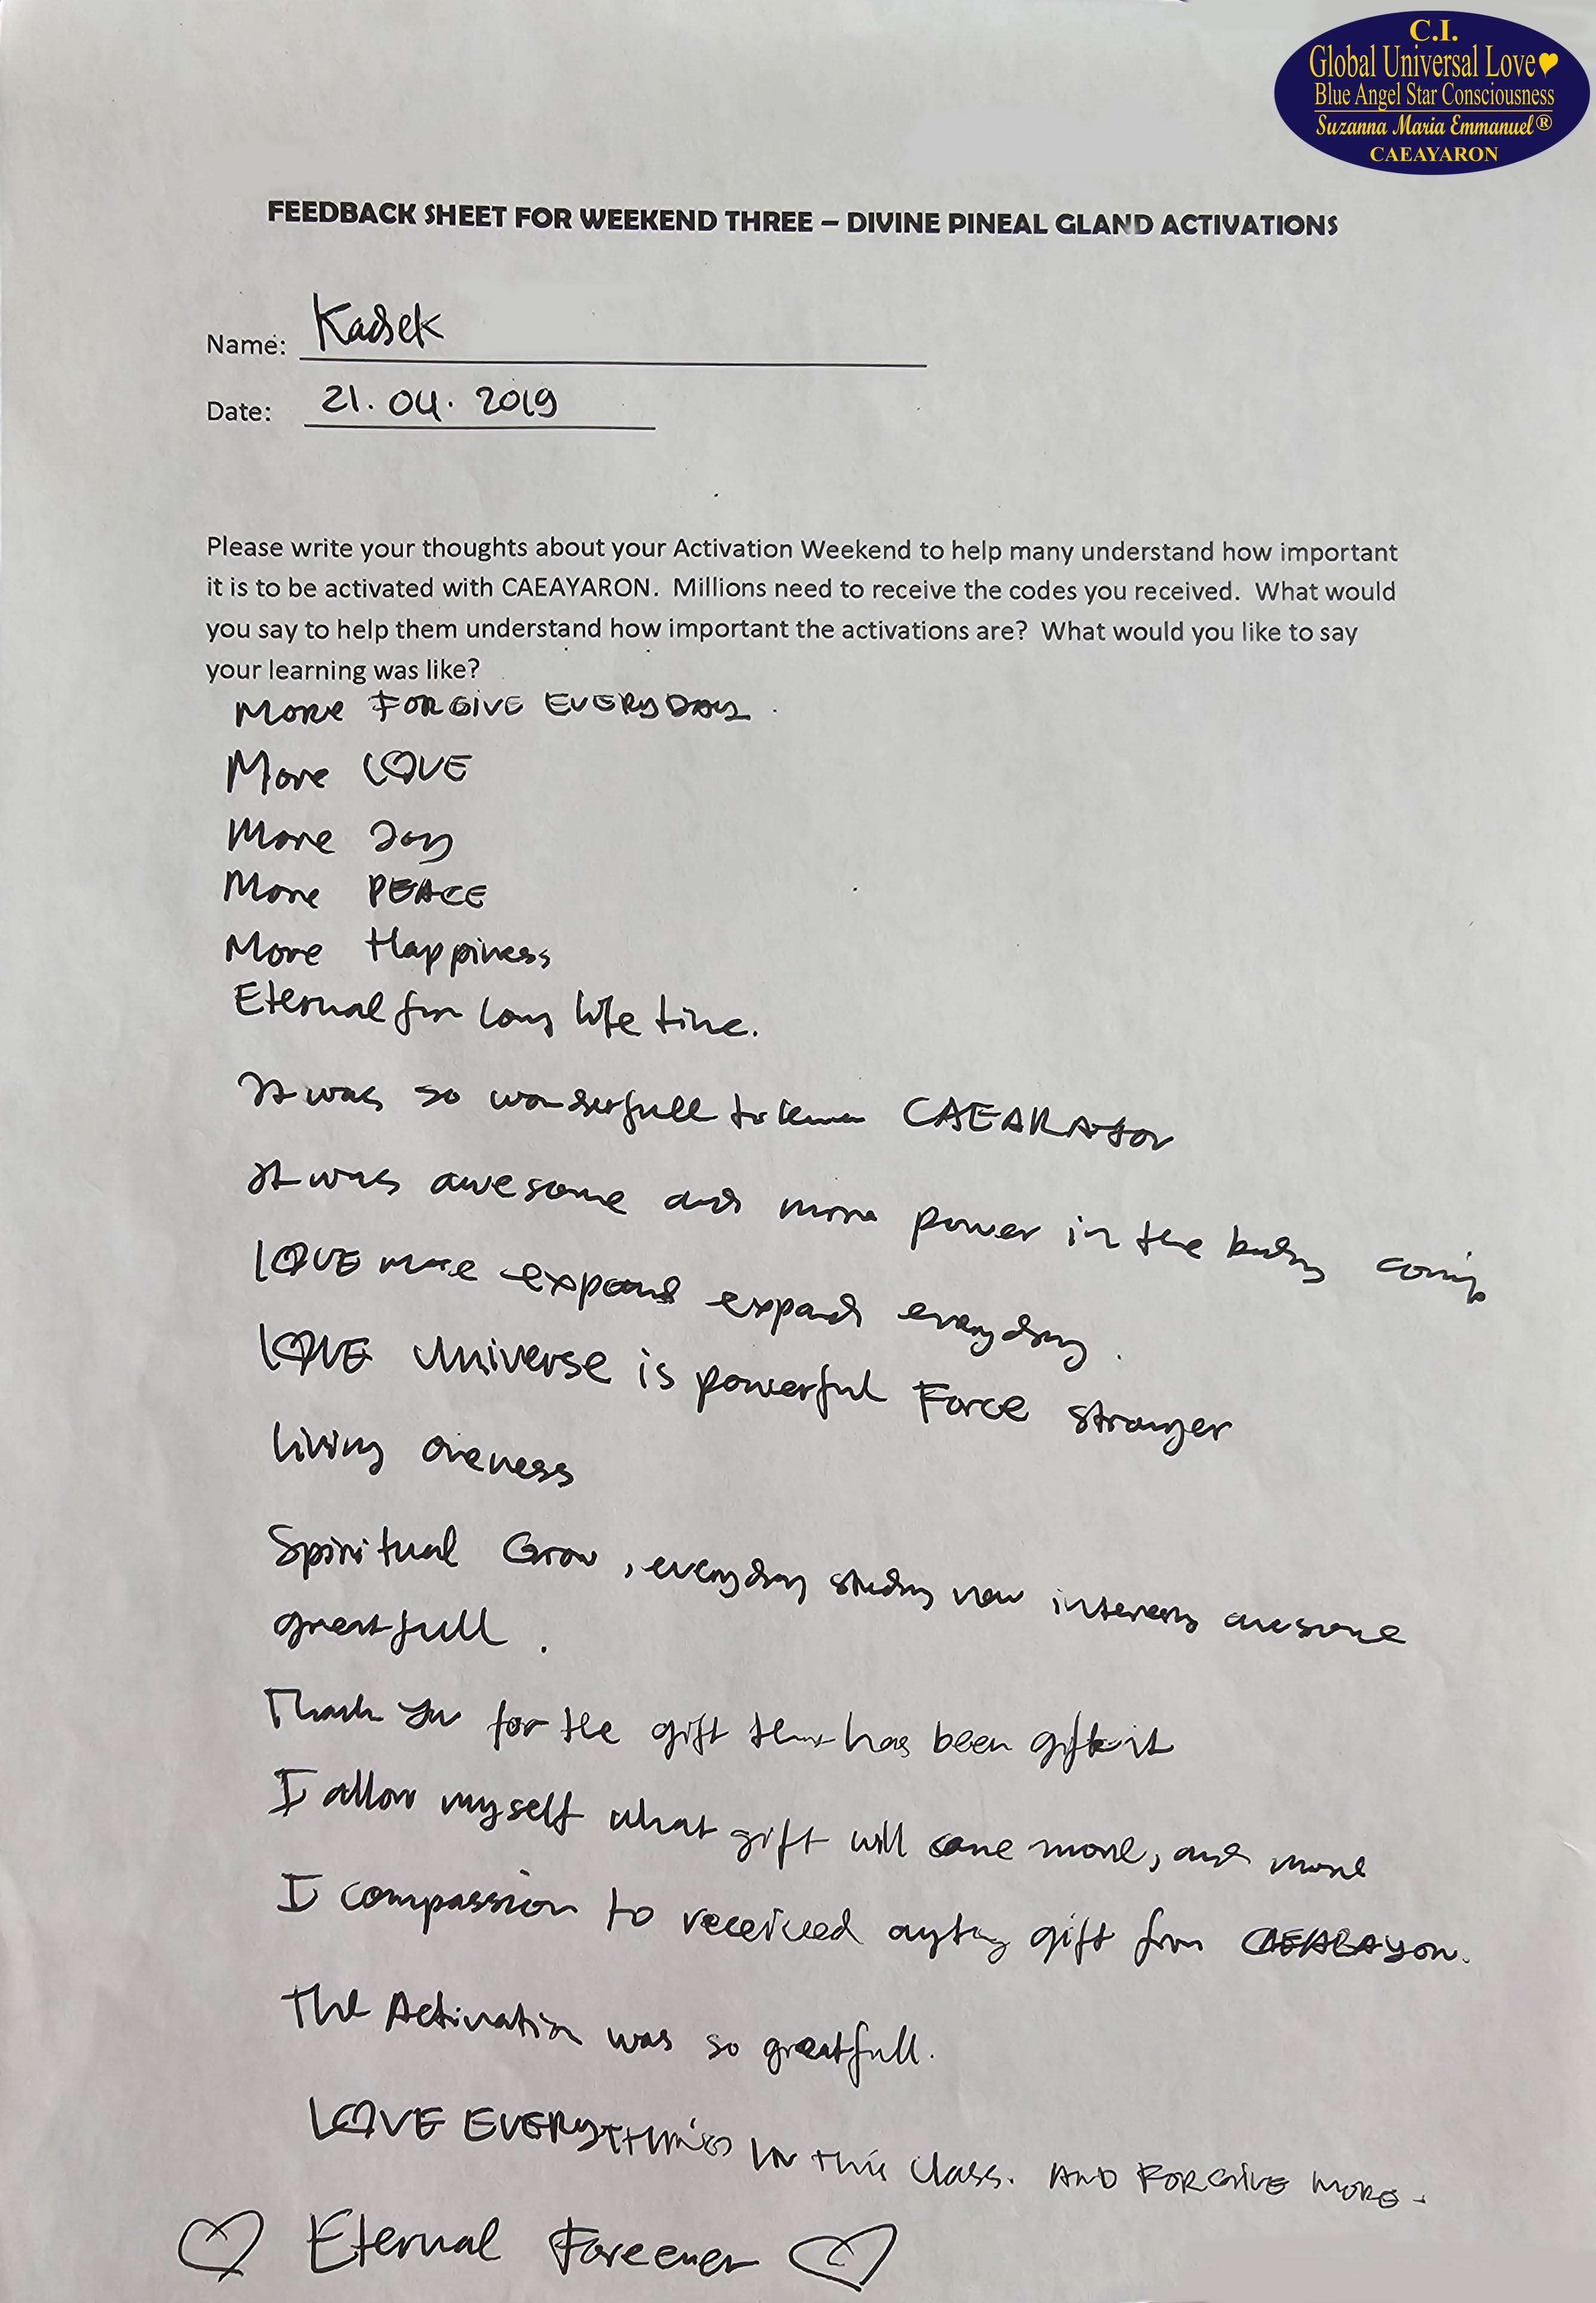 C.I.
Global Universal Love
Blue Angel Star Consciousness
Suzanna Maria Emmanuel®
CAEAYARON
FEEDBACK SHEET FOR WEEKEND THREE – DIVINE PINEAL GLAND ACTIVATIONS
Name: Kadek
Date: 21.04.2019
Please write your thoughts about your Activation Weekend to help many understand how important
it is to be activated with CAEAYARON. Millions need to receive the codes you received. What would
you say to help them understand how important the activations are? What would you like to say
your learning was like?
MORE FORGIVE EVERYDAY.
More LOVE
More Joy
More PEACE
More Happiness
Eternal for long life time.
It was so wonderfull to know
It was awesome and more power in the body coming
LOVE more expand expand everyday.
LOVE Universe is powerful Force stronger
living oneness
Spiritual Grow, everyday study new awesome
greatfull.
Thank You for the gift that has been
I allow myself what gift will come more, and more
I compassion to received gift from
The Activation was so greatfull.
LOVE EVERYTHING IN THIS Class. AND FORGIVE MORE.
Eternal Foreever